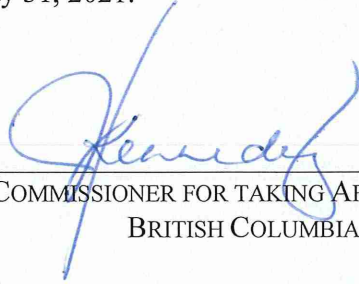 31, 2021.
Kennedy
COMMISSIONER FOR TAKING
BRITISH COLUMBIA